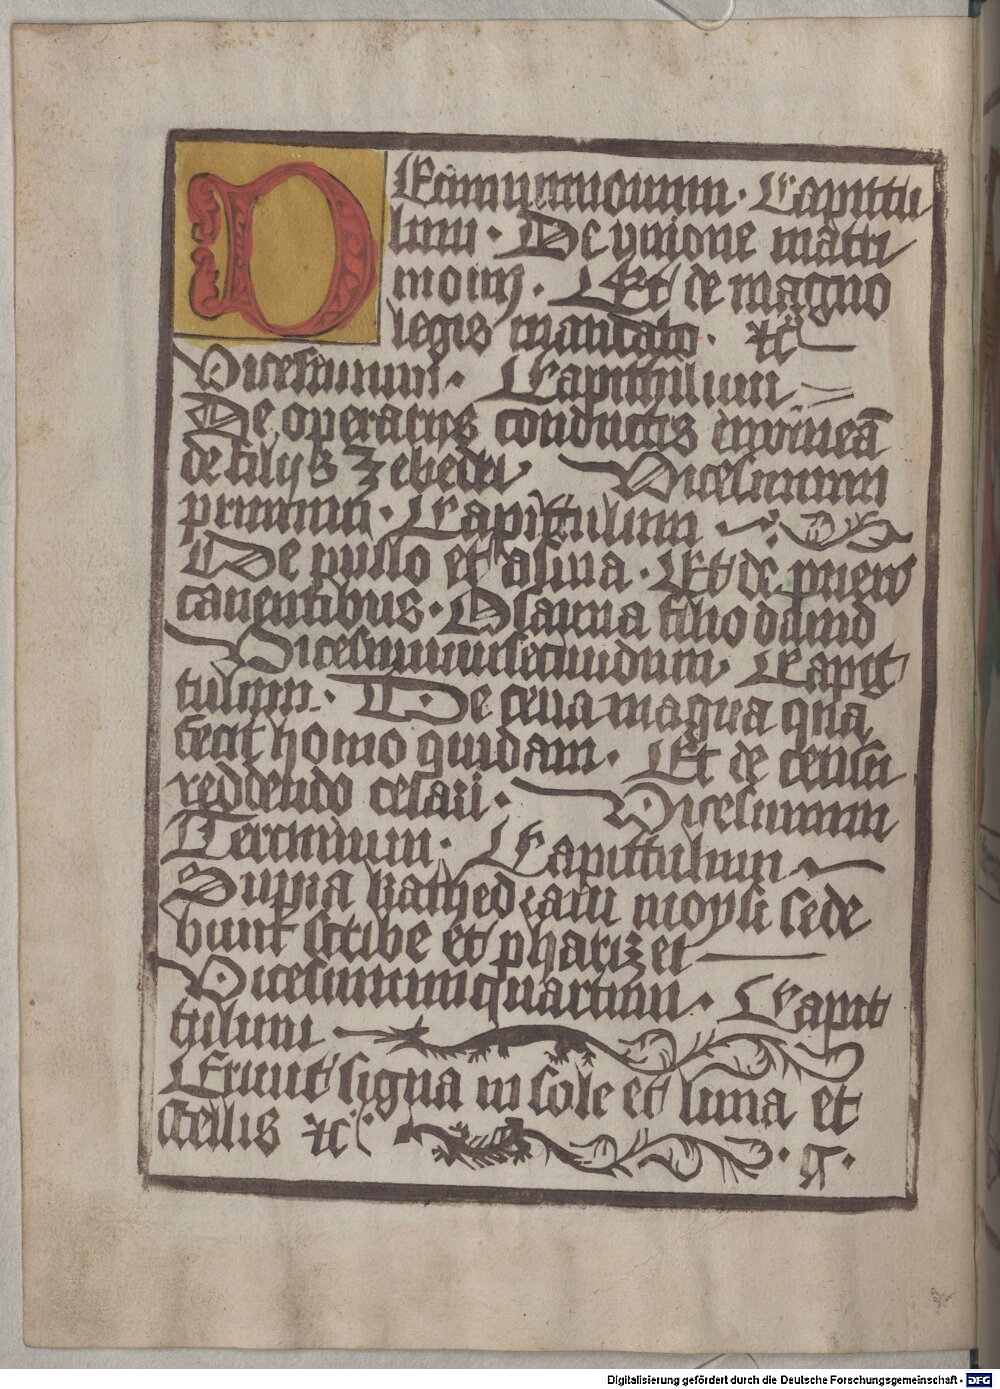 DEcimumnonum · Capittu
lum · De vnione matri
monij · Et de magno
legis mandato · ⁊c̈
Vicesimum · Capittulum
De operarijs conductis inuineā
de filijs Zebedei Vicesimum
primum · Capittulum
De pullo et asina · Et de pueris
canentibus · Osanna filio dauid
Vicesimumsecundum Capit
tulum · De cena magna qua
fecit homo quidam · Et de censu
reddendo cesari · Vicesimum
Tercium · Capittulum
Supra kathedram moysi sede
bunt scribe et pharizei
Vicesimumquartum · Capit
tulum
Erunt signa in sole et luna et
stellis ⁊c
Digitalisierung gefördert durch die Deutsche Forschungsgemeinschaft - DFG